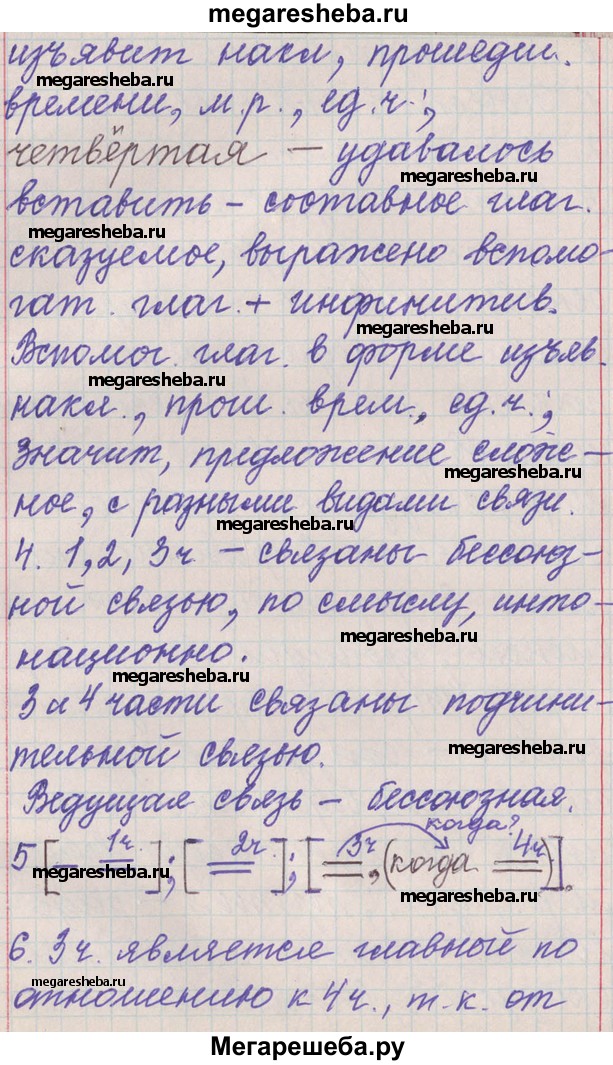 megaresheba.ru
изъявит накл, прошедш.
megaresheba.ru
времени, м.р., ед.ч.,
четвёртая – удавалось
megaresheba.ru
вставить – составное глаг.
megaresheba.ru
сказуемое, выражено вспомо-
гат. глаг. + инфинитив.
megaresheba.ru
Вспомог. глаг. в форме изъяв.
megaresheba.ru
накл., прош. врем., ед.ч.,
Значит, предложение слож-
megaresheba.ru
ное, с разными видами связи.
megaresheba.ru
4. 1, 2, 3ч – связаны бессоюз-
ной связью, по смыслу, инто-
megaresheba.ru
национно.
3 и 4 части связаны подчини-
тельной связью.
megaresheba.ru
Ведущая связь – бессоюзная.
когда?
5 [1ч.]; [2ч.]; [3ч, (когда 4ч)].
megaresheba.ru
megaresheba.ru
6. 3ч. является главной по
megaresheba.ru
отношению к 4ч., т.к. от
Мегарешеба.ру